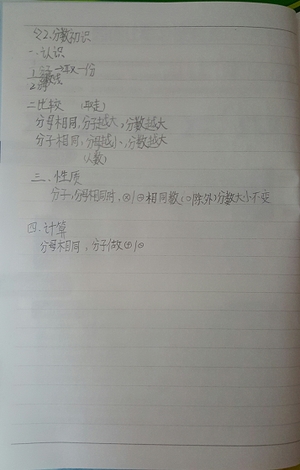 §2.分数初识
一.认识
1. →取一份
2.
二.比较
分母相同,分子越大,分数越大
分子相同,分母越小,分数越大
(人数)
三.性质
分子,分母相同时,⊗|⊖相同数(0除外)分数大小不变
四.计算
分母相同,分子做⊕|⊖